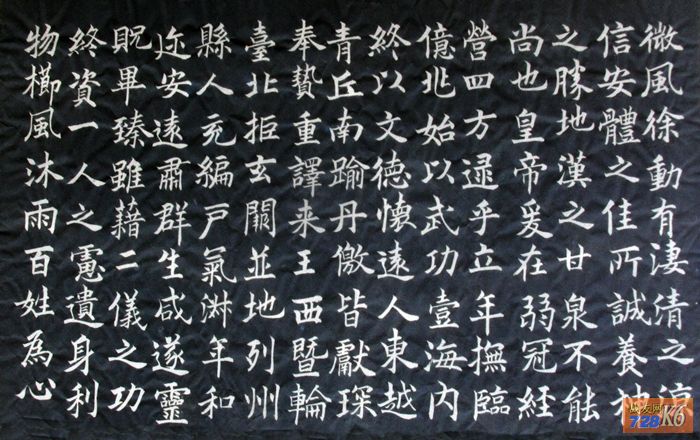 微風徐動有淒清之涼
信安體之佳所誠養神
之勝地漢之甘泉不能
尚也皇帝爰在弱冠經
營四方逮乎立年撫臨
億兆始以武功壹海內
終以文德懷遠人東越
青丘南踰丹儌皆獻琛
奉贄重譯来王西暨輪
臺北拒玄闕並地列州
縣人充編戶氣淑年和
迩安遠肅群生咸遂靈
貺畢臻雖藉二儀之功
終資一人之慮遺身利
物櫛風沐雨百姓為心
728 K6